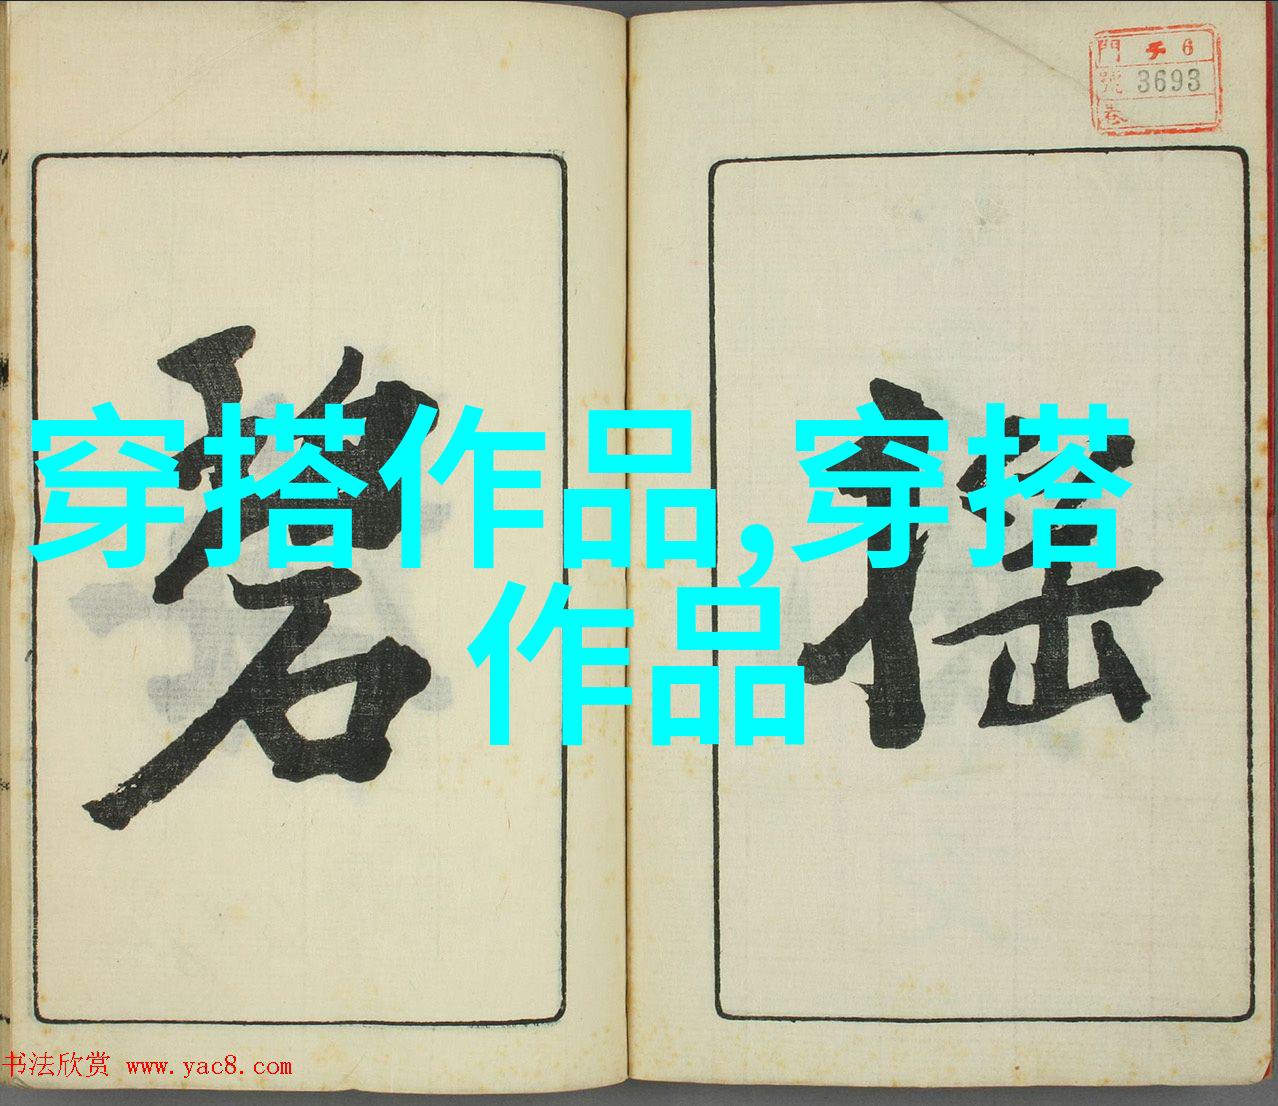 門 チ 6
號 3693
卷
碧
穿搭作品,穿搭
作品
书法欣赏 www.yac8.com